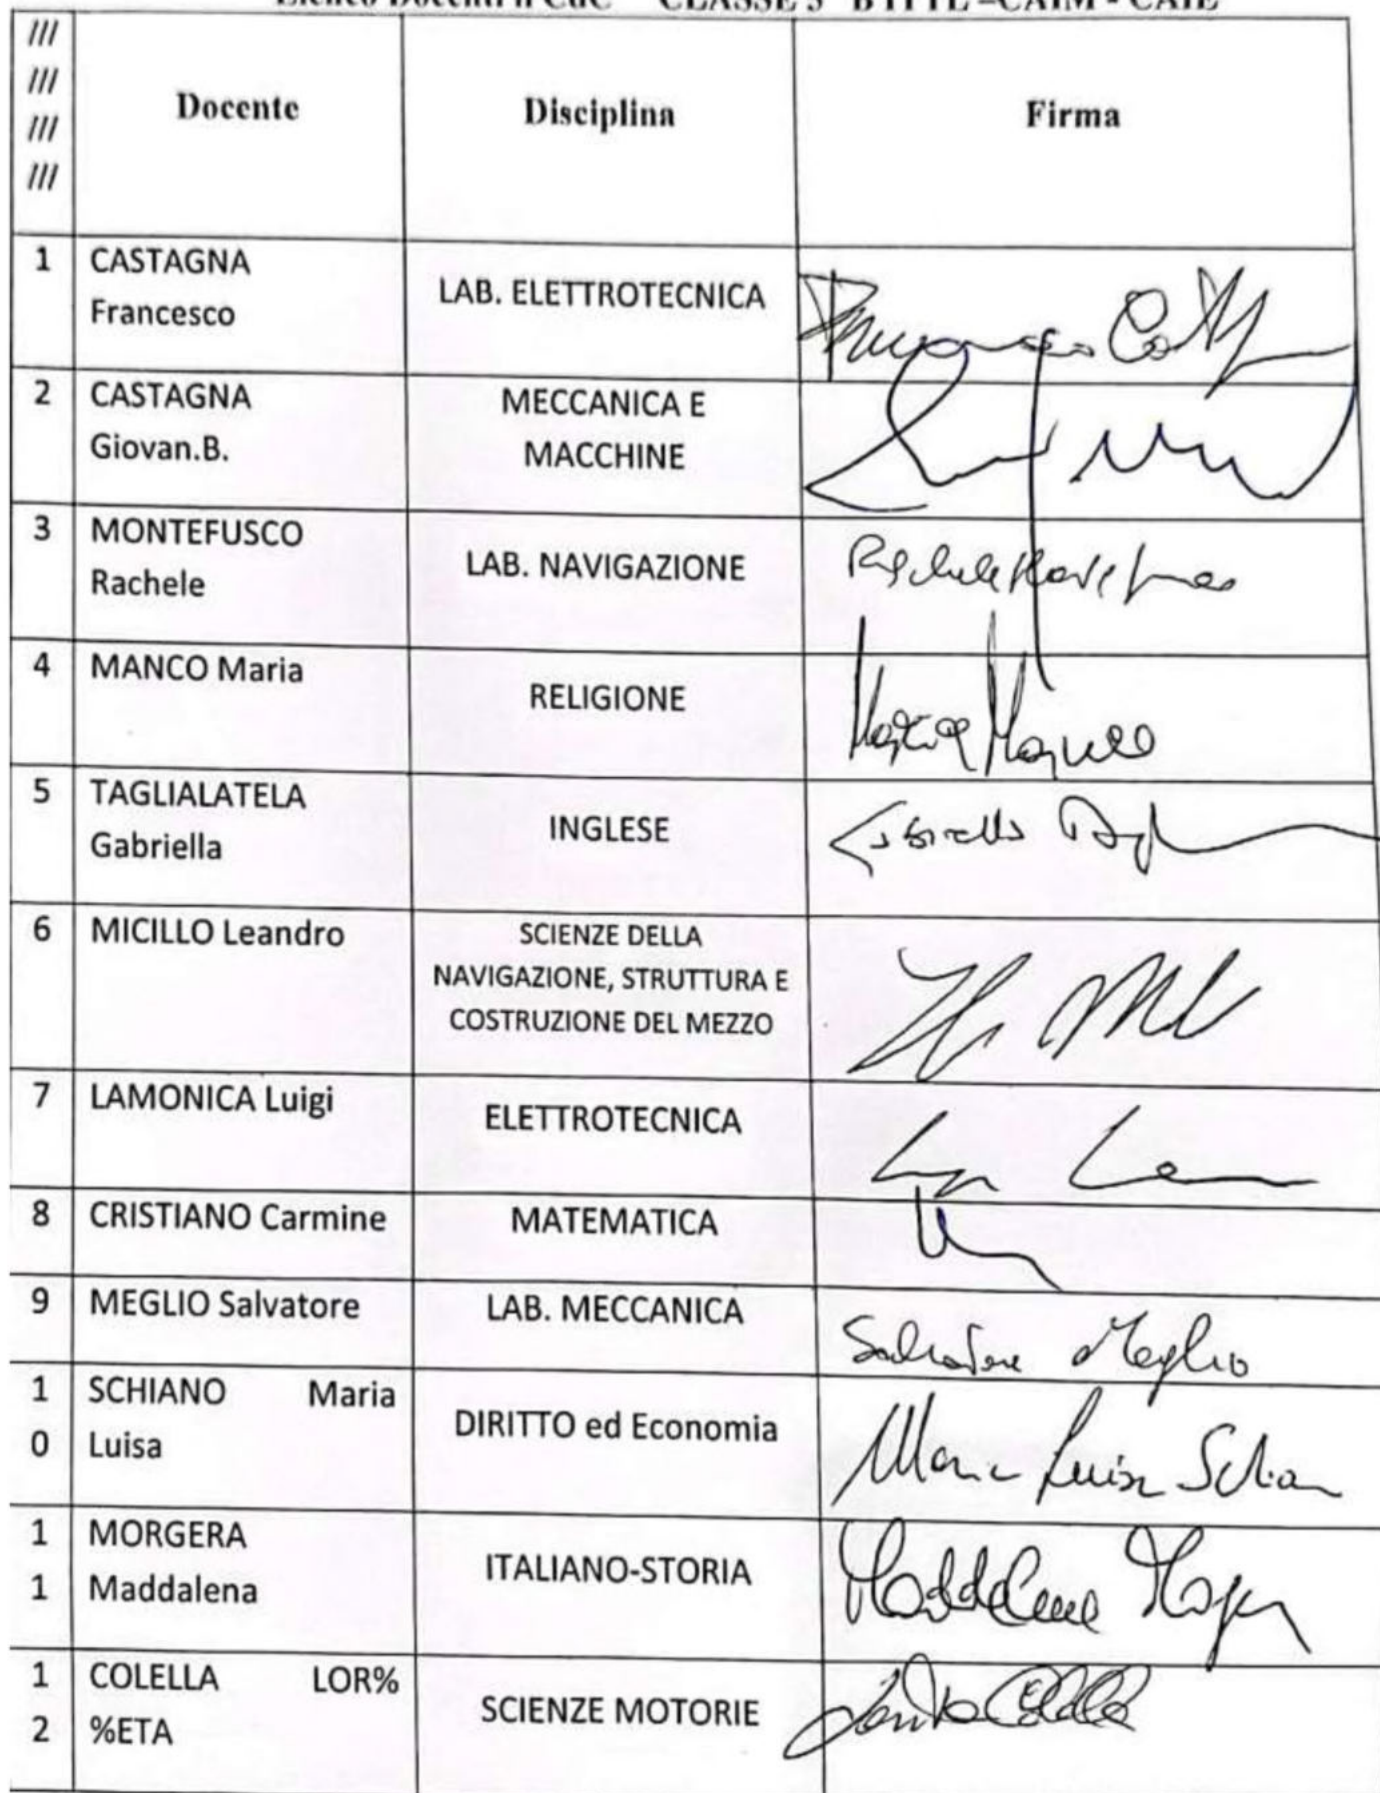 Elenco Docenti n CdC CLASSE 5 B ITTL –CAIM - CAIE
///
///
///
///
Docente Disciplina Firma
1 CASTAGNA
Francesco
LAB. ELETTROTECNICA
2 CASTAGNA
Giovan.B.
MECCANICA E
MACCHINE
3 MONTEFUSCO
Rachele
LAB. NAVIGAZIONE
4 MANCO Maria
RELIGIONE
5 TAGLIALATELA
Gabriella
INGLESE
6 MICILLO Leandro
SCIENZE DELLA
NAVIGAZIONE, STRUTTURA E
COSTRUZIONE DEL MEZZO
7 LAMONICA Luigi
ELETTROTECNICA
8 CRISTIANO Carmine
MATEMATICA
9 MEGLIO Salvatore
LAB. MECCANICA
Salvatore Meglio
1
0
SCHIANO Maria
Luisa
DIRITTO ed Economia
Maria Luisa Schian
1
1
MORGERA
Maddalena
ITALIANO-STORIA
1
2
COLELLA LOR%
%ETA
SCIENZE MOTORIE